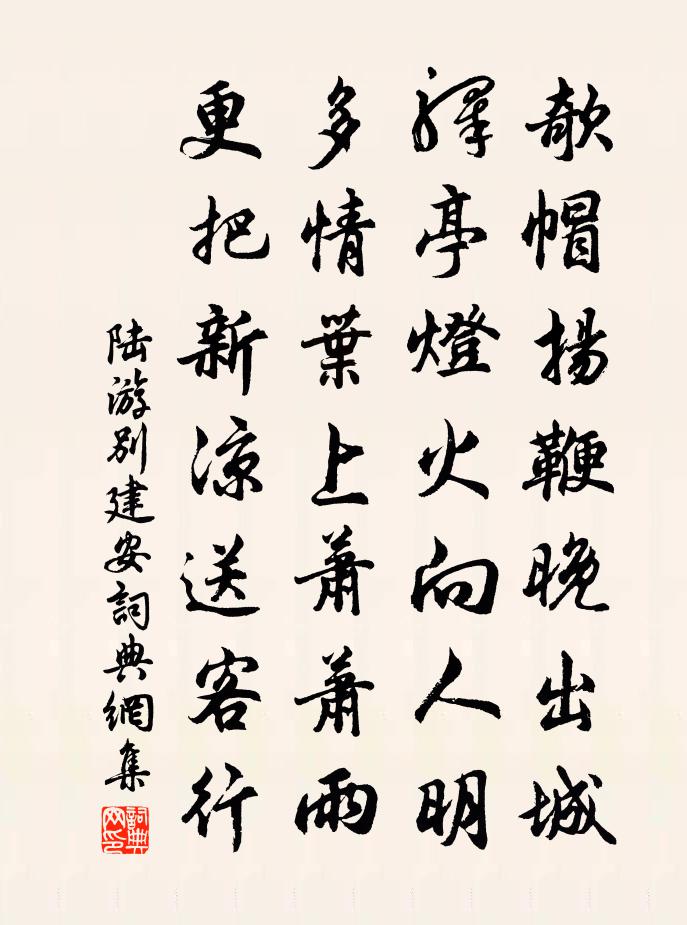 欹帽揚鞭晚出城
驛亭燈火向人明
多情葉上蕭蕭雨
更把新涼送客行
陸游別建安詞典網集
詞典網印